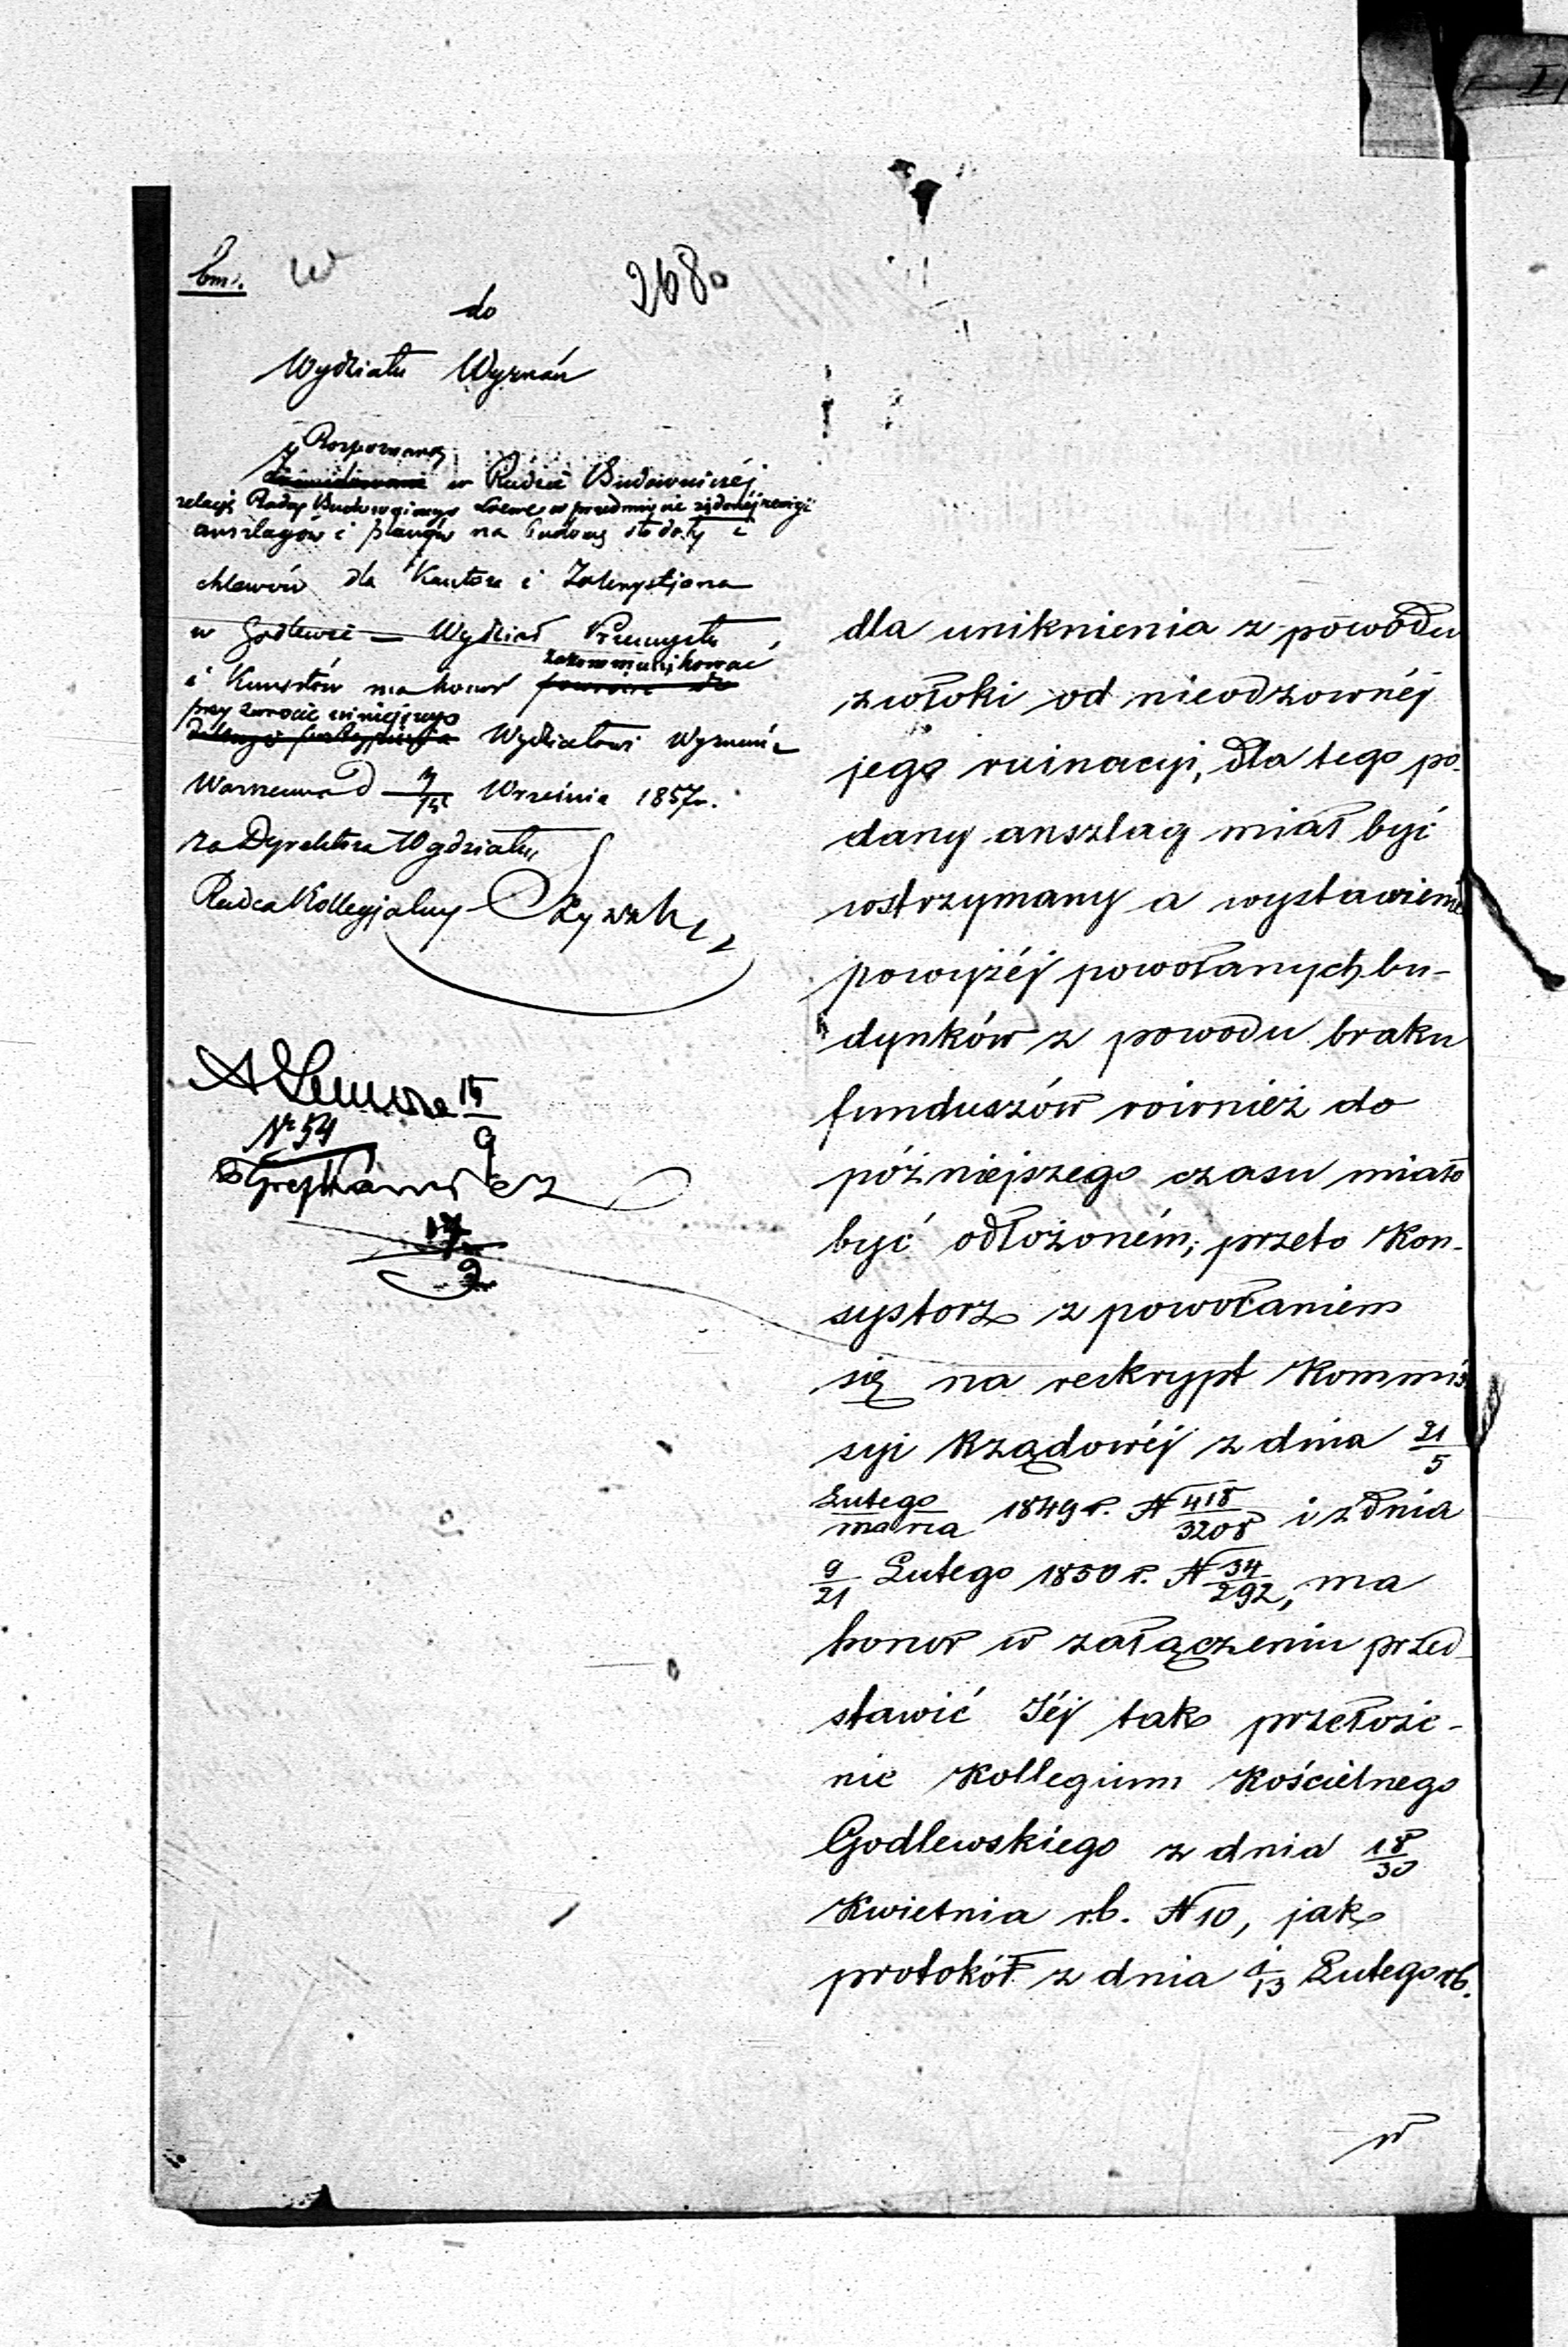 bm.
2680
do
Wydziału Wyznań
Rozpoznaną
w Radzie Budowniczéj
relację Radcy Budowniczego Loewe w przedmiocie żądanéj rewizji
anszlagów i planów na budowę stodoły i
chlewów dla Kantora i Zakrystjana
w Godlewie — Wydział Przemysłu
i Kunsztów ma honor zakommunikować
przy zwrocie niniejszego
Wydziałowi Wyznań
Warszawa d Września 1857r.
za Dyrektora Wydziału,
Radca Kollegjalny
15/9
№ 54
17/9
dla uniknienia z powodu
zwłoki od nieodzownéj
jego ruinacyi, dla tego po-
dany anszlag miał być
wstrzymany a wystawienie
powyżéj powołanych bu-
dynków z powodu braku
funduszów również do
późniejszego czasu miało
być odłożoném; przeto Kon-
systorz z powołaniem
się na reskrypt Kommis
syi Rządowéj z dnia 21/5
Lutego/marca 1849 r. N 418/3208 i z dnia
9/21 Lutego 1850 r. N 34/292, ma
honor w załączeniu przed-
stawić Jéj tak przełoże-
nie Kollegium Kościelnego
Godlewskiego z dnia 18/30
Kwietnia rb. N 10, jak
protokół z dnia 1/13 Lutego rb.
w